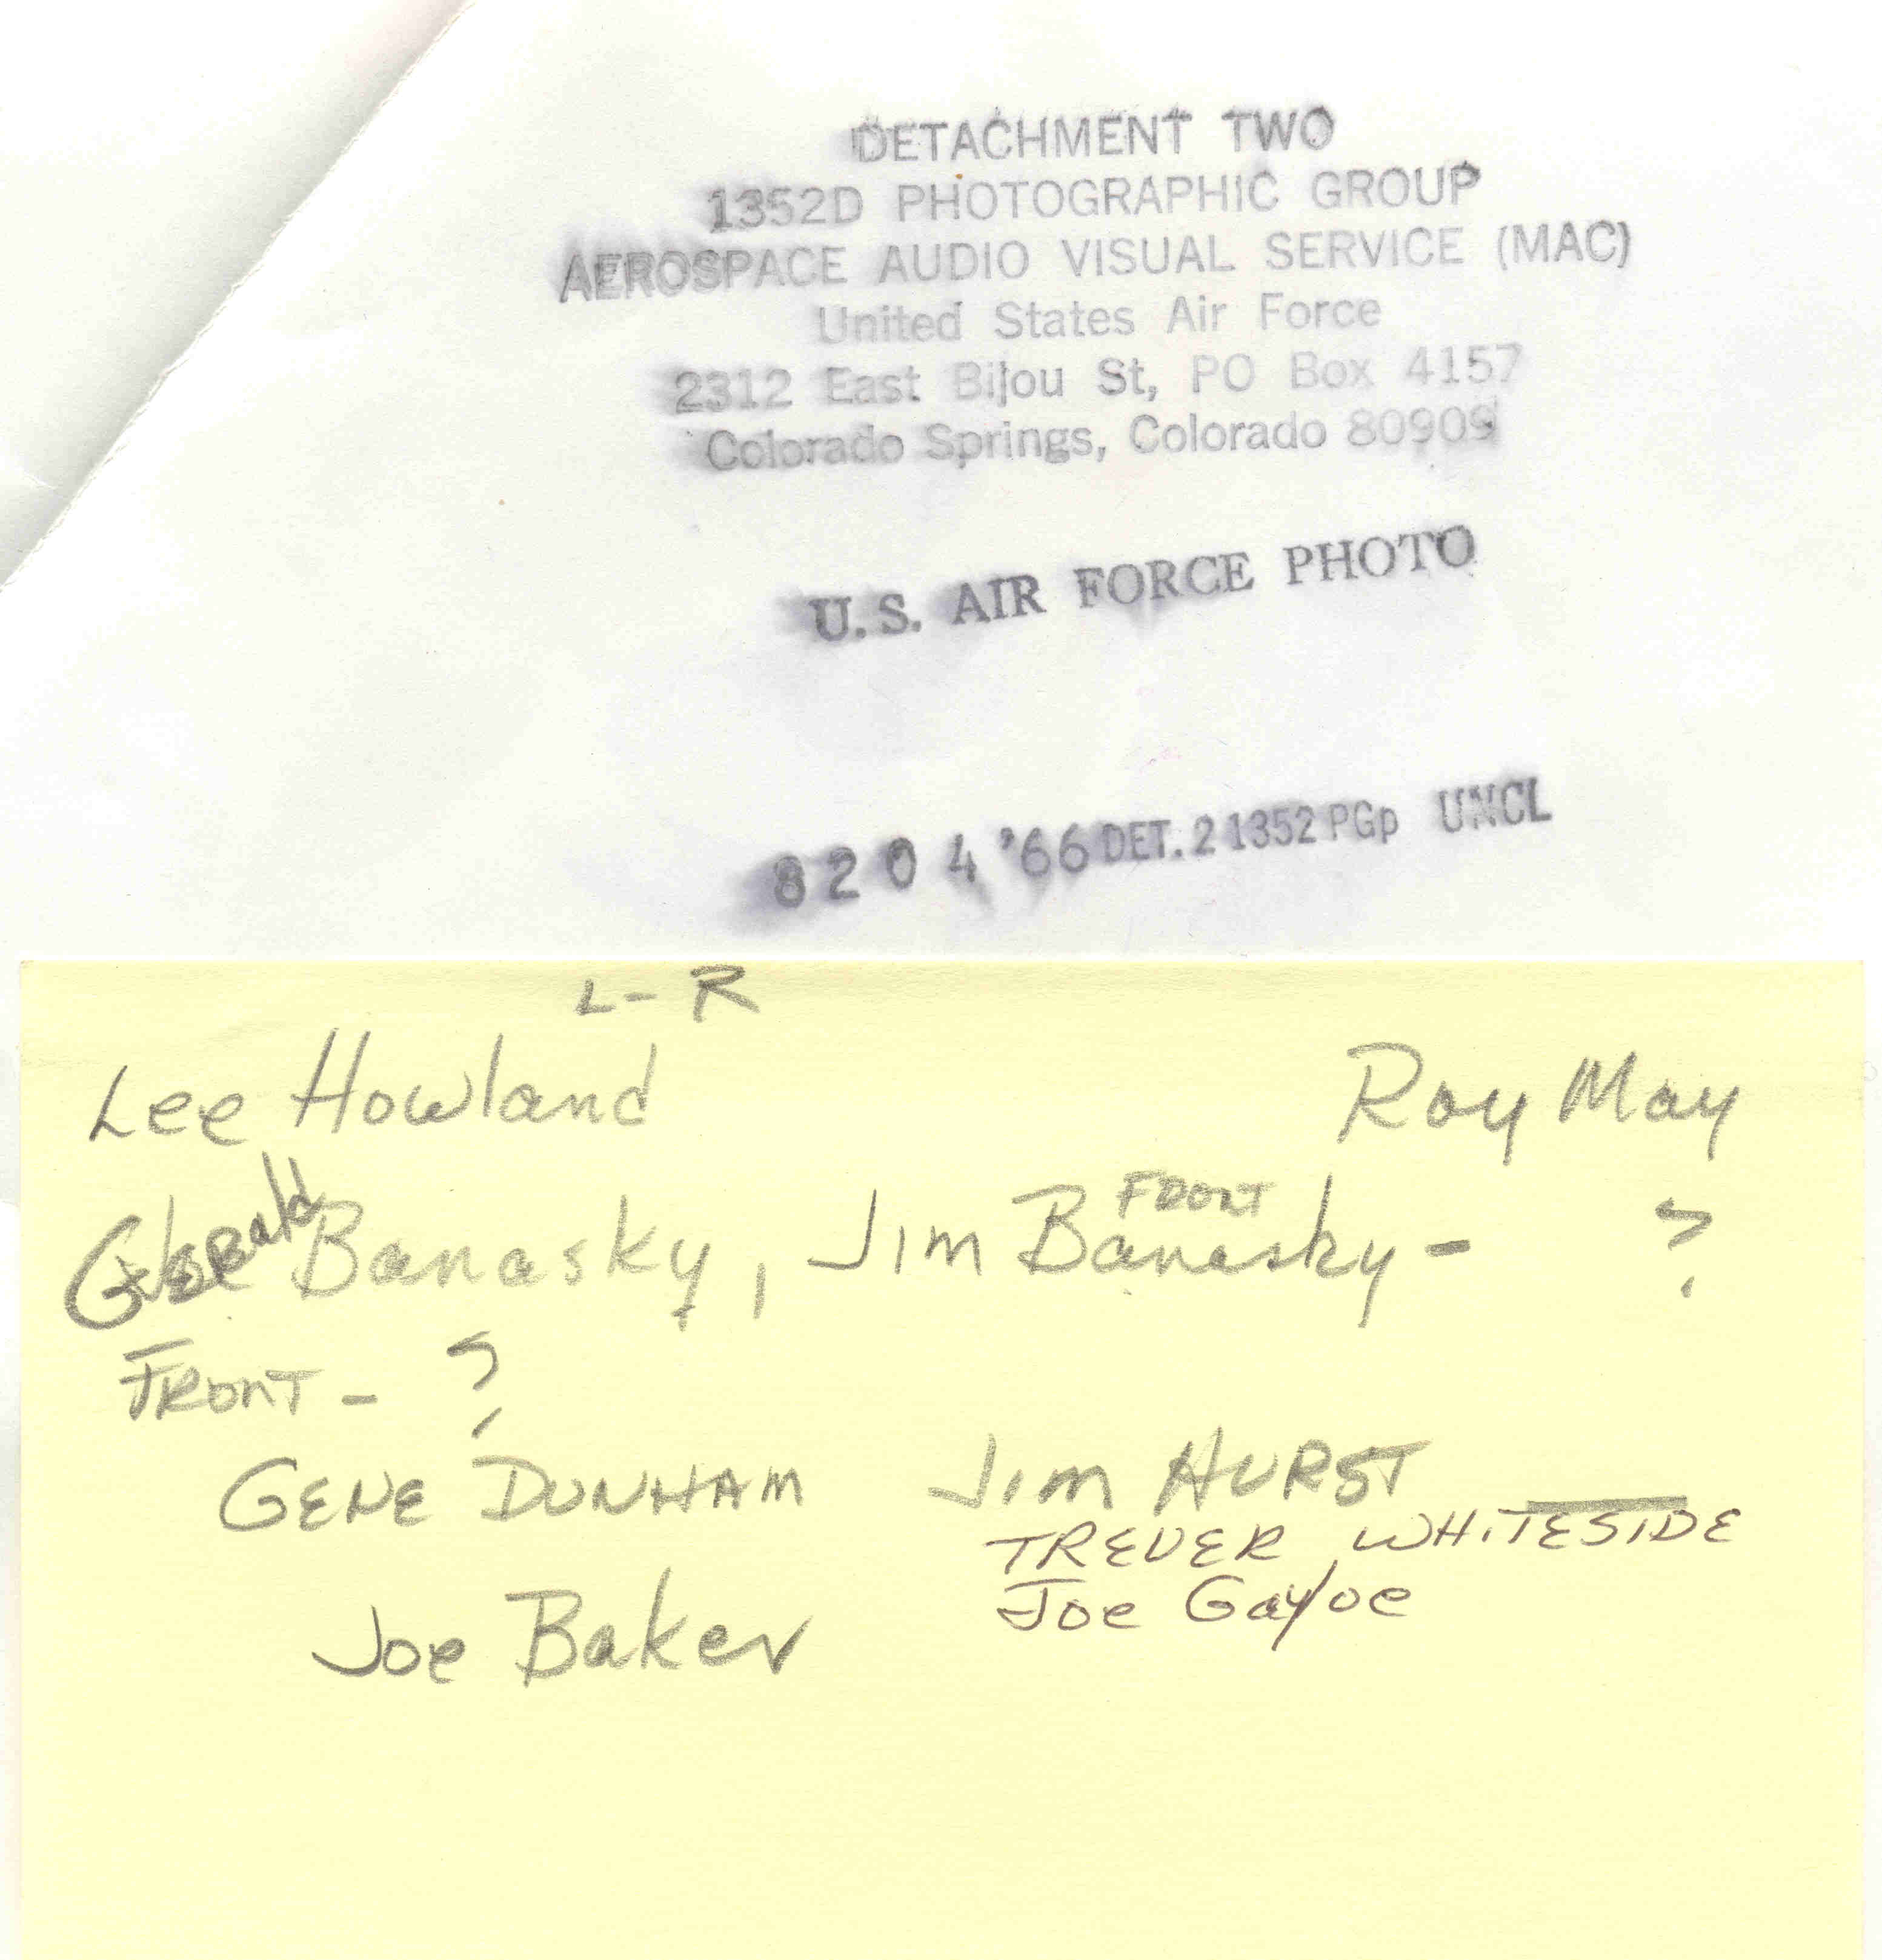 DETACHMENT TWO
1352D PHOTOGRAPHIC GROUP
AEROSPACE AUDIO VISUAL SERVICE (MAC)
United States Air Force
2312 East Bijou St, PO Box 4157
Colorado Springs, Colorado 80909
U.S. AIR FORCE PHOTO
8204 '66 DET. 2 1352 PGp UNCL
L-R
Lee Howland Roy May
Gerald Banasky, Jim Banasky - ?
FRONT
FRONT - ?
GENE DUNHAM Jim HURST
TREVER WHITESIDE
Joe Gayloe
Joe Baker